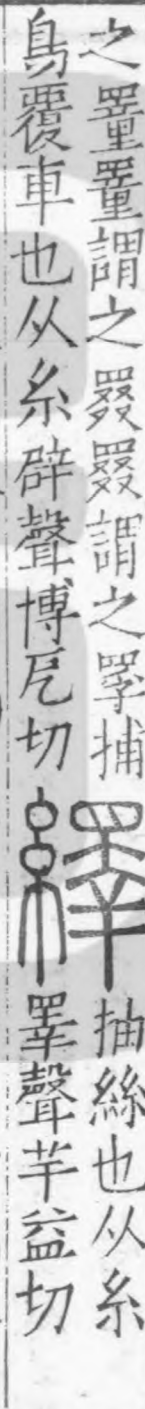 之罿罿謂之罬罬謂之罦捕
鳥覆車也从糸辟聲博戹切
繹
抽絲也从糸
睪聲羊益切